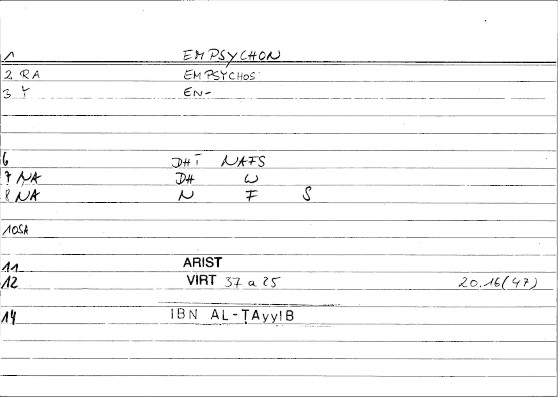 1 EMPSYCHON
2 RA EMPSYCHOS
3 Y EN-
6 DHĪ NAFS
7 NA DH W
8 NA N F S
10 SA
11 ARIST
12 VIRT 37 a 25 20.16(47)
14 IBN AL-ṬAyyIB